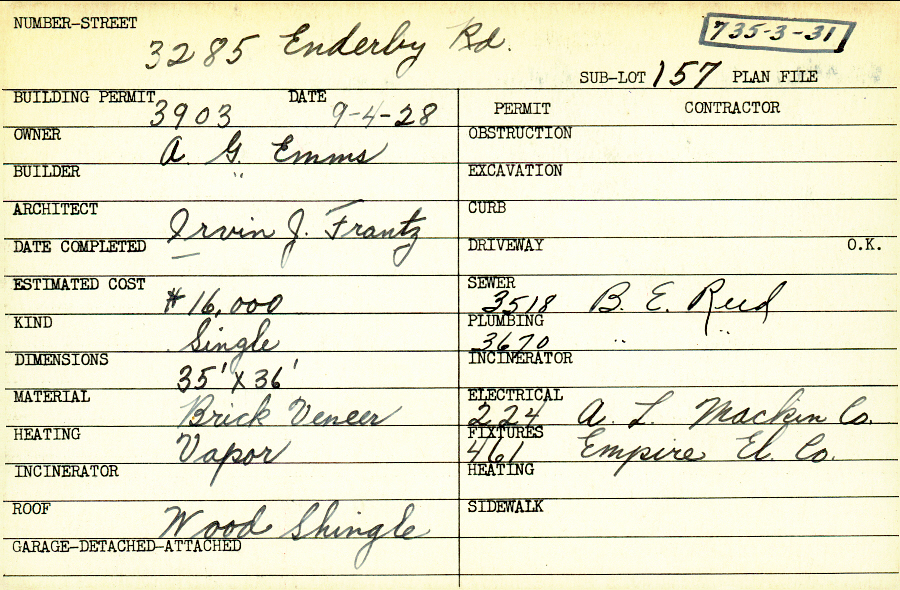 NUMBER-STREET 3285 Enderby Rd. 735-3-31
SUB-LOT 157 PLAN FILE
BUILDING PERMIT 3903 DATE 9-4-28
PERMIT CONTRACTOR
OWNER A. G. Emms
OBSTRUCTION
BUILDER "
EXCAVATION
ARCHITECT Irvin J. Frantz
CURB
DATE COMPLETED —
DRIVEWAY O.K.
ESTIMATED COST $16,000
SEWER 3518 B. E. Reed
KIND Single
PLUMBING 3670 " "
DIMENSIONS 35' X 36'
INCINERATOR
MATERIAL Brick Veneer
ELECTRICAL 224 A. L. Mackin Co.
HEATING Vapor
FIXTURES 461 Empire El. Co.
INCINERATOR
HEATING
ROOF Wood Shingle
SIDEWALK
GARAGE-DETACHED-ATTACHED